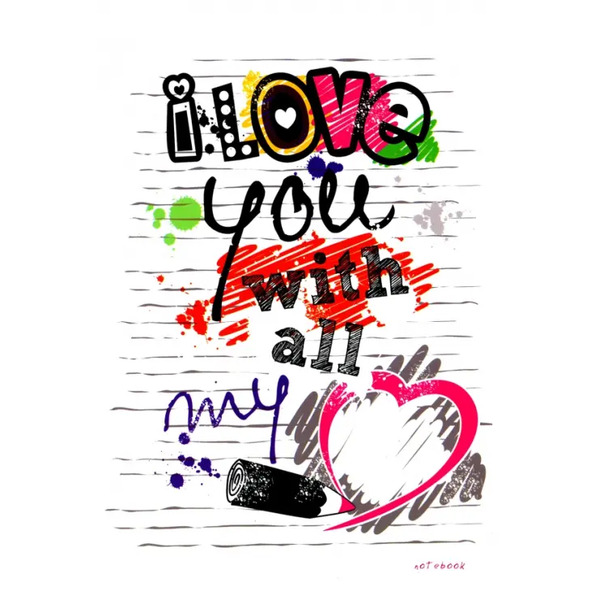 i LOve
you
with
all
my
notebook